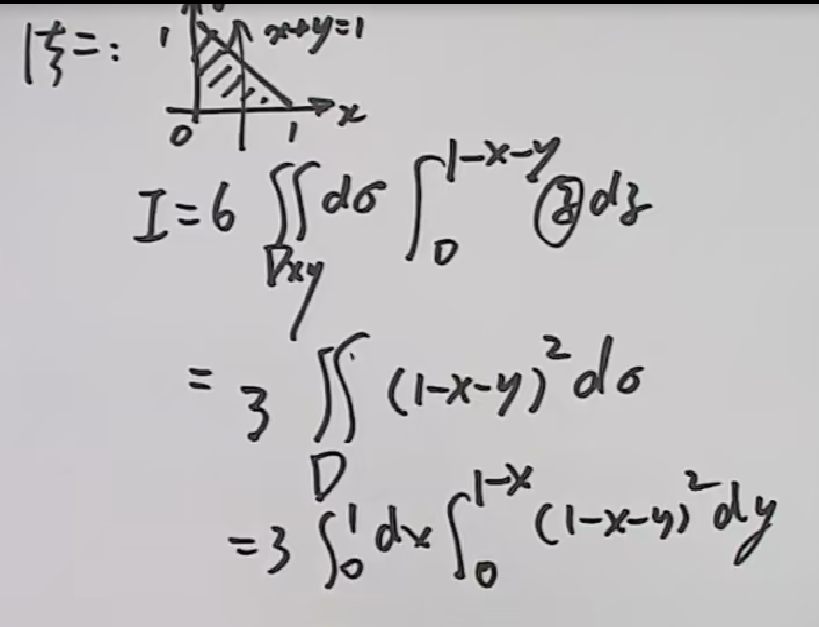 法二: 1 x+y=1
0 1 x
I=6∬_{Dxy} dσ ∫_0^{1-x-y} z dz
=3∬_D (1-x-y)^2 dσ
=3∫_0^1 dx ∫_0^{1-x} (1-x-y)^2 dy